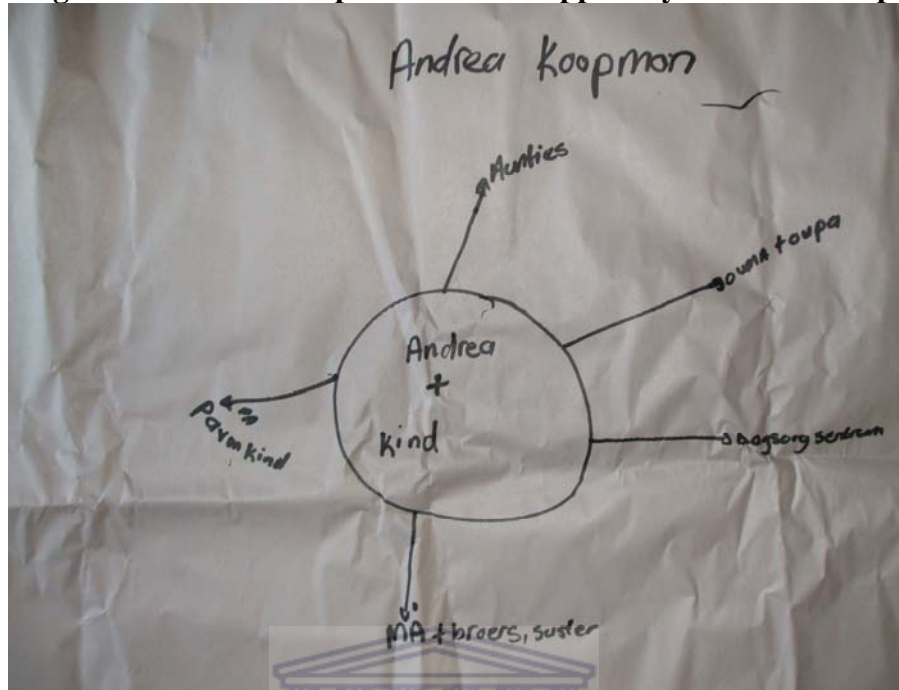 Andrea Koopman
Aunties
ouMA + oupa
Andrea
+
kind
Dagsorg sentrum
pa van kind
MA + broers, suster